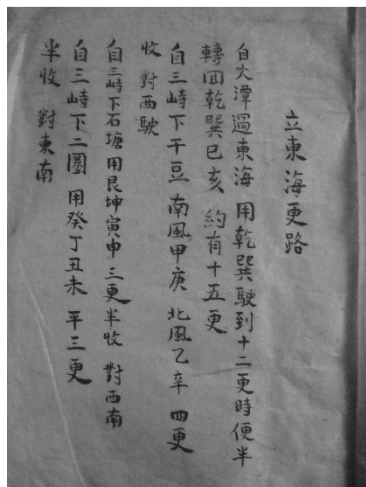 立東海更路
自大潭過東海 用乾巽駛到十二更時便半
轉回乾巽巳亥 約有十五更
自三峙下干豆 南風甲庚 北風乙辛 四更
收 對西駛
自三峙下石塘 用艮坤寅申 三更半收 對西南
自三峙下二圈 用癸丁丑未 平三更
半收 對東南